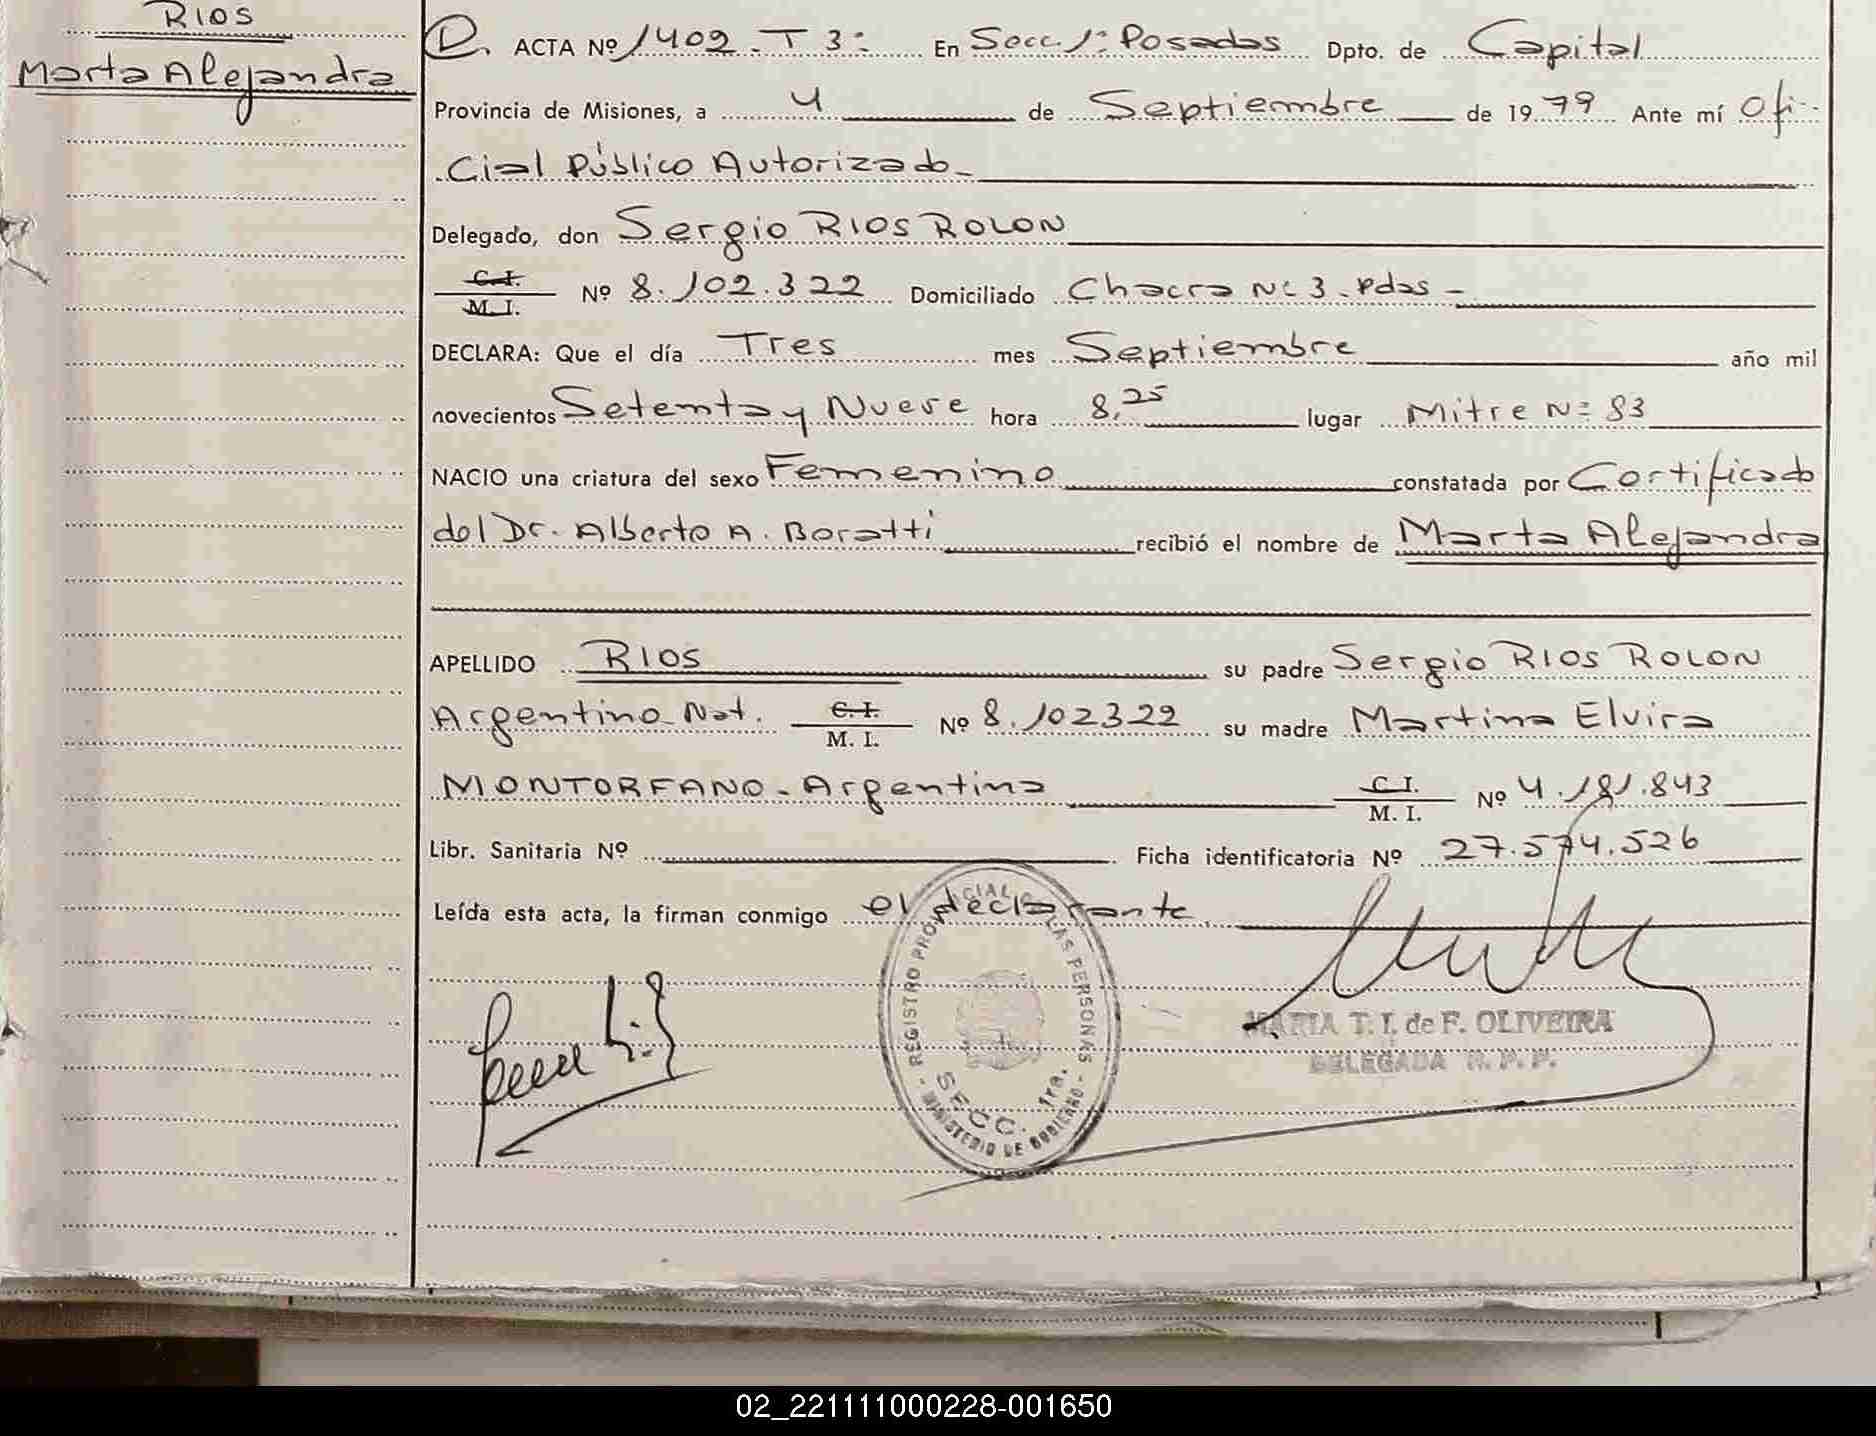 RIOS
Marta Alejandra
ACTA Nº 1402. T 3º En Secc. 1º Posadas Dpto. de Capital
Provincia de Misiones, a 4 de Septiembre de 1979 Ante mí Ofi-
cial Público Autorizado-
Delegado, don Sergio RIOS ROLON
C.I.
M. I. Nº 8.102.322 Domiciliado Chacra Nº 3. Pdas -
DECLARA: Que el día Tres mes Septiembre año mil
novecientos Setenta y Nueve hora 8,25 lugar Mitre Nº 83
NACIO una criatura del sexo Femenino constatada por Certificado
del Dr. Alberto A. Boratti recibió el nombre de Marta Alejandra
APELLIDO RIOS su padre Sergio RIOS ROLON
Argentino Nat. C. I.
M. I. Nº 8.102322 su madre Martina Elvira
MONTORFANO - Argentina C I.
M. I. Nº 4.181.843
Libr. Sanitaria Nº Ficha identificatoria Nº 27.574.526
Leída esta acta, la firman conmigo el declarante
REGISTRO PROVINCIAL DE LAS PERSONAS
SECC. 1ra.
MINISTERIO DE GOBIERNO
MARIA T. I. de F. OLIVEIRA
DELEGADA R. P. P.
02_221111000228-001650